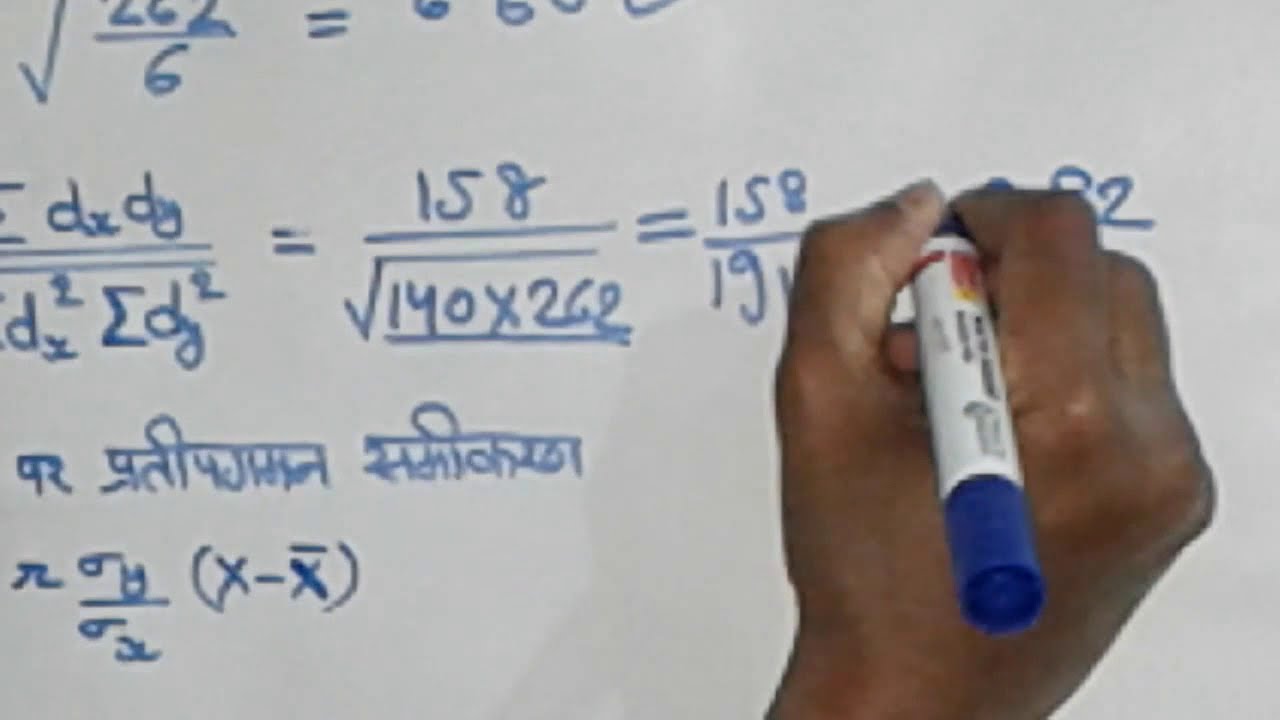 √262/6 =
Σ dx dy / dx² Σdy² = 158 / √140×262 = 158 / 19
पर प्रतीपगमन समीकरण
r σy/σx (X-X̄)